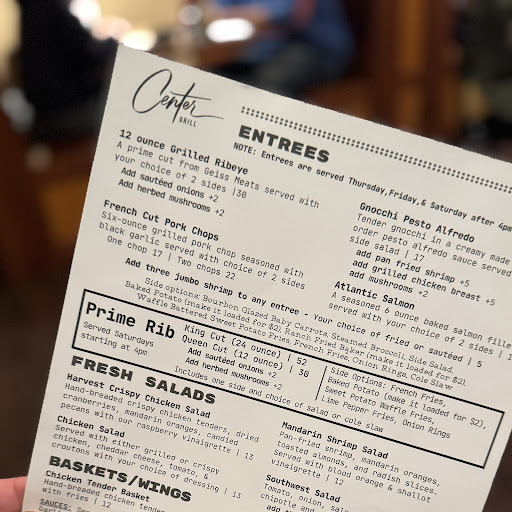 Center
GRILL
ENTREES
NOTE: Entrees are served Thursday,Friday,& Saturday after 4pm
12 ounce Grilled Ribeye
A prime cut from Geiss Meats served with
your choice of 2 sides |30
Add sautéed onions +2
Add herbed mushrooms +2
French Cut Pork Chops
Six-ounce grilled pork chop seasoned with
black garlic served with choice of 2 sides
One chop 17 | Two chops 22
Gnocchi Pesto Alfredo
Tender gnocchi in a creamy made
order pesto alfredo sauce served
side salad | 17
add pan fried shrimp +5
add grilled chicken breast +5
add mushrooms +2
Atlantic Salmon
A seasoned 6 ounce baked salmon fille
served with your choice of 2 sides |
Add three jumbo shrimp to any entree - Your choice of fried or sautéed | 5
Side options: Bourbon Glazed Baby Carrots, Steamed Broccoli, Side Salad,
Baked Potato (make it loaded for $2), Ranch Fried Baker (make it loaded for $2),
Waffle Battered Sweet Potato Fries, French Fries, Onion Rings, Cole Slaw
Prime Rib
Served Saturdays
starting at 4pm
King Cut (24 ounce) | 52
Queen Cut (12 ounce) | 30
Add sautéed onions +2
Add herbed mushrooms +2
Includes one side and choice of salad or cole slaw
Side Options: French Fries,
Baked Potato (make it loaded for $2),
Sweet Potato Waffle Fries,
Lime Pepper Fries, Onion Rings
FRESH SALADS
Harvest Crispy Chicken Salad
Hand-breaded crispy chicken tenders, dried
cranberries, mandarin oranges, candied
pecans with our raspberry vinaigrette | 13
Chicken Salad
Served with either grilled or crispy
chicken, cheddar cheese, tomato, &
croutons with your choice of dressing | 13
Mandarin Shrimp Salad
Pan-fried shrimp, mandarin oranges,
toasted almonds, and radish slices,
Served with blood orange & shallot
vinaigrette | 12
Southwest Salad
Tomato, onion, sals
chipotle and
add
BASKETS/WINGS
Chicken Tender Basket
Hand-breaded chicken tender
with fries | 12
SAUCES: